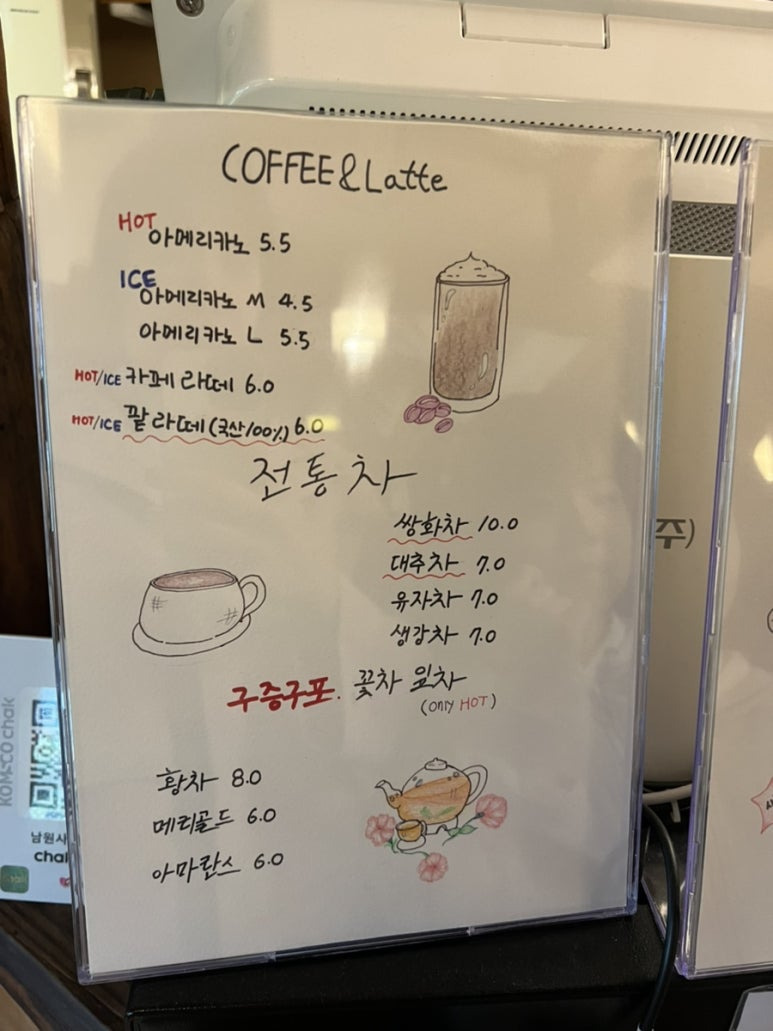 COFFEE & Latte
HOT 아메리카노 5.5
ICE 아메리카노 M 4.5
아메리카노 L 5.5
HOT/ICE 카페 라떼 6.0
HOT/ICE 팥 라떼 (국산100%) 6.0
전통차
쌍화차 10.0
대추차 7.0
유자차 7.0
생강차 7.0
구증구포. 꽃차 잎차
(only HOT)
황차 8.0
메리골드 6.0
아마란스 6.0
주)
KOMSCO chak
남원사
cha